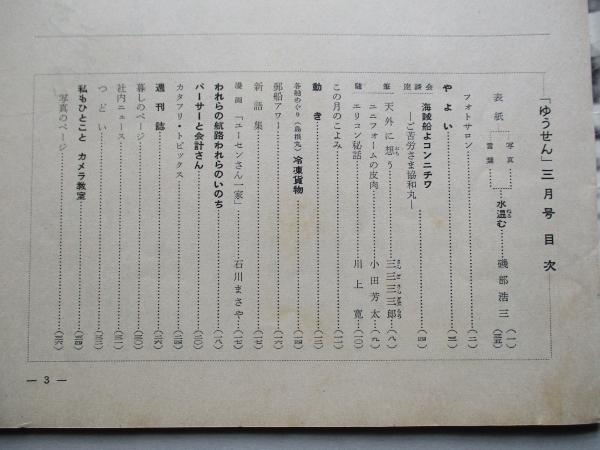 「ゆうせん」三月号 目次
表紙 写真 言葉 水温む 磯部浩三 (一)
フォトサロン (二)
やよい (三)
座談会 海賊船よコンニチワ (四)
―ご苦労さま協和丸―
随筆 天外に想う 三三三三郎 (八)
ユニフォームの皮肉 小田芳太 (九)
エリコン秘話 川上寛 (一〇)
この月のこよみ (一一)
動き (一二)
各船めぐり(島根丸) 冷凍貨物 (一四)
郵船アワー (一六)
新語集 (一七)
漫画 「ユーセンさん一家」 石川まさや (一七)
われらの航路われらのいのち (一八)
パーサーと会計さん (二〇)
カタフリ・トピックス
週刊誌
暮しのページ
社内ニュース
つどい
私もひとこと カメラ教室
写真のページ
— 3 —